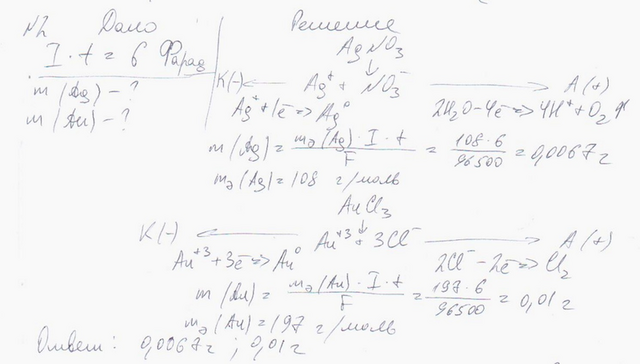 №2 Дано Решение
I·t = 6 Фарад AgNO₃
m(Ag) - ? K(-) ← Ag⁺ + NO₃⁻ → A(+)
m(Au) - ? Ag⁺ + 1ē => Ag⁰ 2H₂O - 4ē => 4H⁺ + O₂↑
m(Ag) = mэ(Ag)·I·t / F = 108·6 / 96500 = 0,0067 г
mэ(Ag) = 108 г/моль
AuCl₃
K(-) ← Au⁺³ + 3Cl⁻ → A(+)
Au⁺³ + 3ē => Au⁰ 2Cl⁻ - 2ē => Cl₂
m(Au) = mэ(Au)·I·t / F = 197·6 / 96500 = 0,01 г
mэ(Au) = 197 г/моль
Ответ: 0,0067 г ; 0,01 г